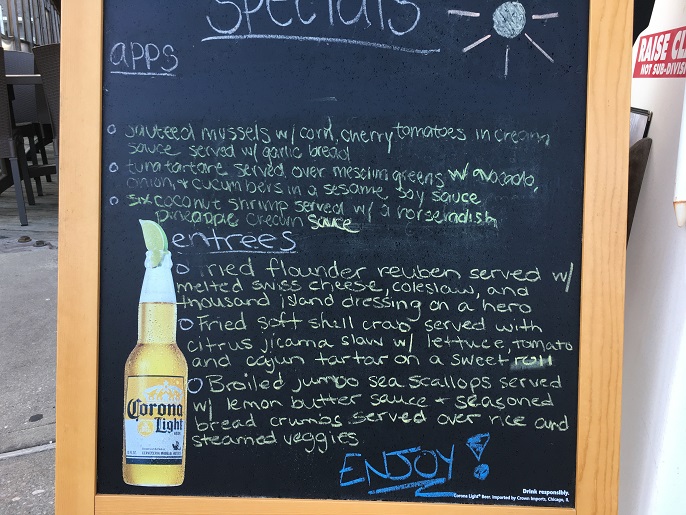 Specials
apps
sauteed mussels w/ corn, cherry tomatoes in cream
sauce served w/ garlic bread
tuna tartare served over mesclin greens w/ avocado,
onion, & cucumbers in a sesame soy sauce
six coconut shrimp served w/ a horseradish
pineapple cream sauce
entrees
fried flounder reuben served w/
melted swiss cheese, coleslaw, and
thousand island dressing on a hero
Fried soft shell crab served with
citrus jicama slaw w/ lettuce, tomato
and cajun tartar on a sweet roll
Broiled jumbo sea scallops served
w/ lemon butter sauce + seasoned
bread crumbs. served over rice and
steamed veggies
ENJOY!
Corona
Light
Drink responsibly.
Corona Light® Beer. Imported by Crown Imports, Chicago, IL
RAISE CL
NOT SUB-DIVIS